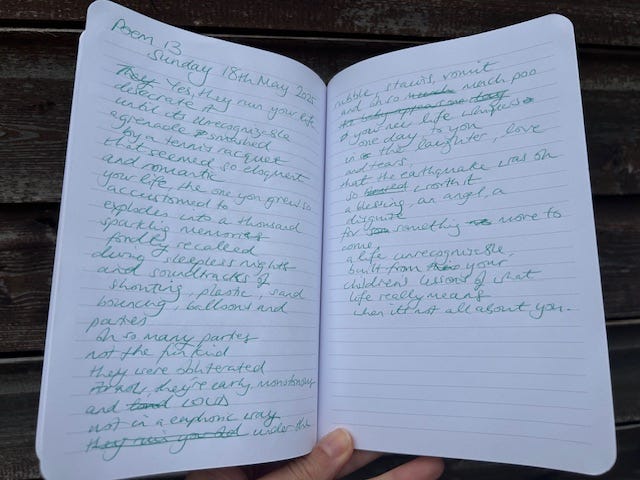 Poem 13
Sunday 18th May 2025
They Yes, they ruin your life
desecrate it
until its unrecognizable
a grenade smashed
by a tennis racquet
that seemed so eloquent
and romantic
your life, the one you grew so
accustomed to
explodes into a thousand
sparkling memories
fondly recalled
during sleepless nights
and soundtracks of
shouting, plastic, sand
bouncing, balloons and
parties
oh so many parties
not the fun kind
they were obliterated
no, they're early, monotonous
and LOUD
not in a euphoric way
they ruin you and under the
rubble, stairs, vomit
and oh so much poo
your new life whispers
one day to you
in the laughter, love
and tears,
that the earthquake was oh
so worth it
a blessing, an angel, a
disguise
for something more to
come,
a life unrecognisable,
built from your
childrens lessons of what
life really means
when it's not all about you.